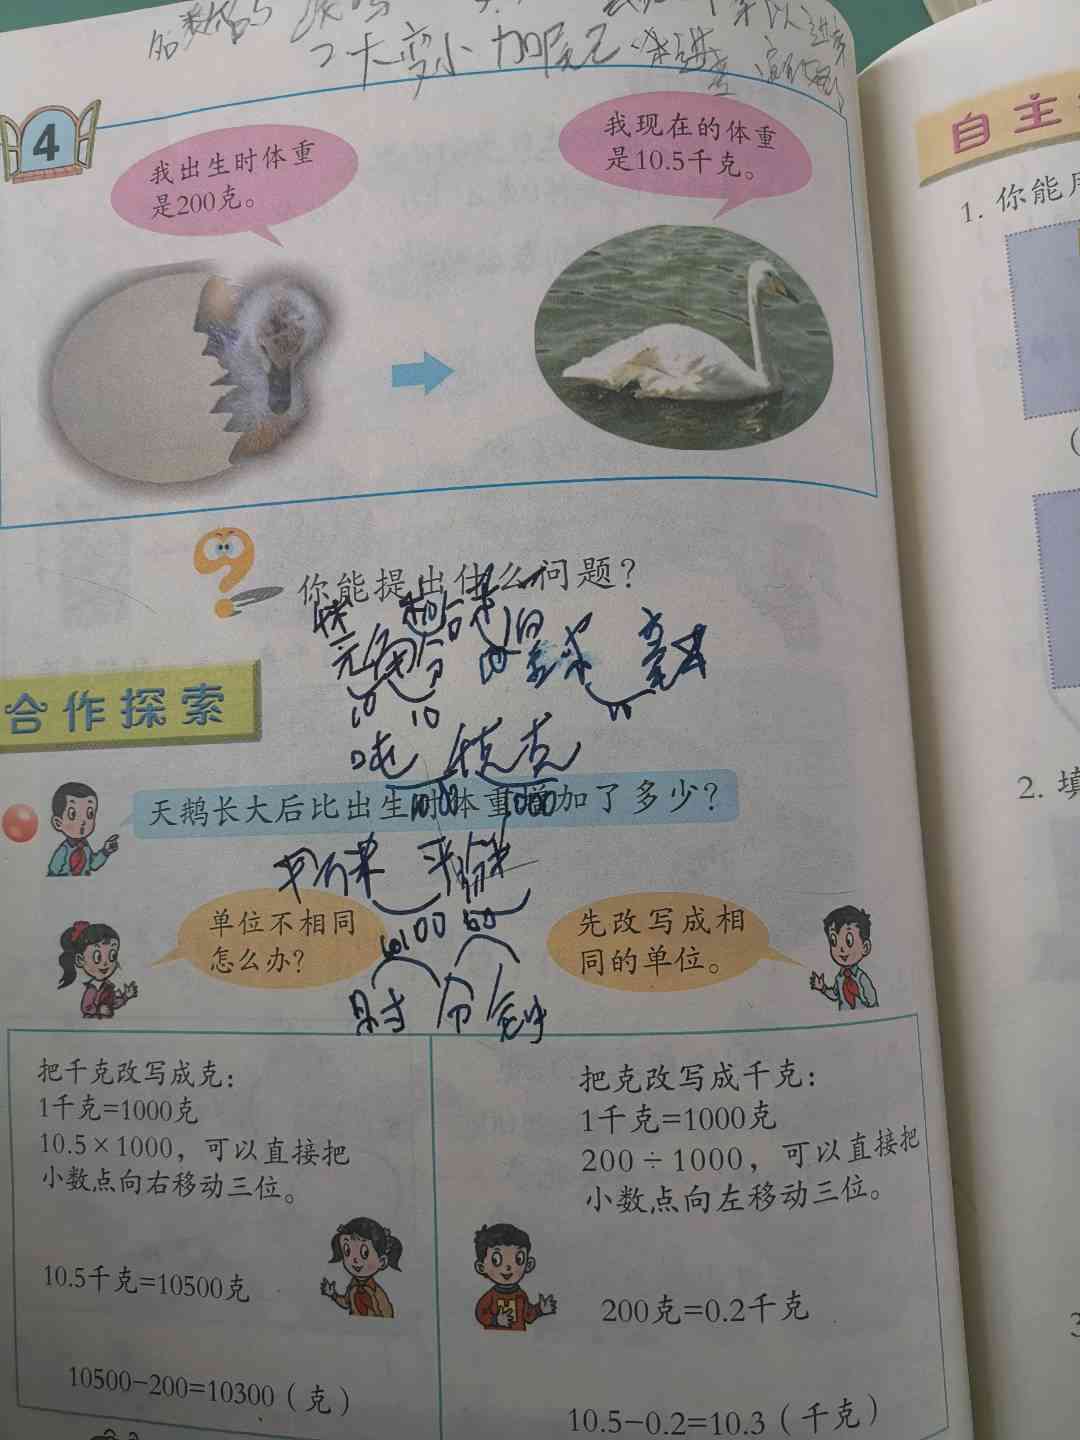 大变小
4
我出生时体重
是200克。
我现在的体重
是10.5千克。
你能提出什么问题？
元角分
10 10
合作探索
吨 千克 克
1000 1000
天鹅长大后比出生时体重增加了多少？
平方米
100
单位不相同
怎么办？
先改写成相
同的单位。
时 分 秒
把千克改写成克：
1千克=1000克
10.5×1000，可以直接把
小数点向右移动三位。
10.5千克=10500克
10500-200=10300（克）
把克改写成千克：
1千克=1000克
200÷1000，可以直接把
小数点向左移动三位。
200克=0.2千克
10.5-0.2=10.3（千克）
自主
1. 你能
2. 填
3